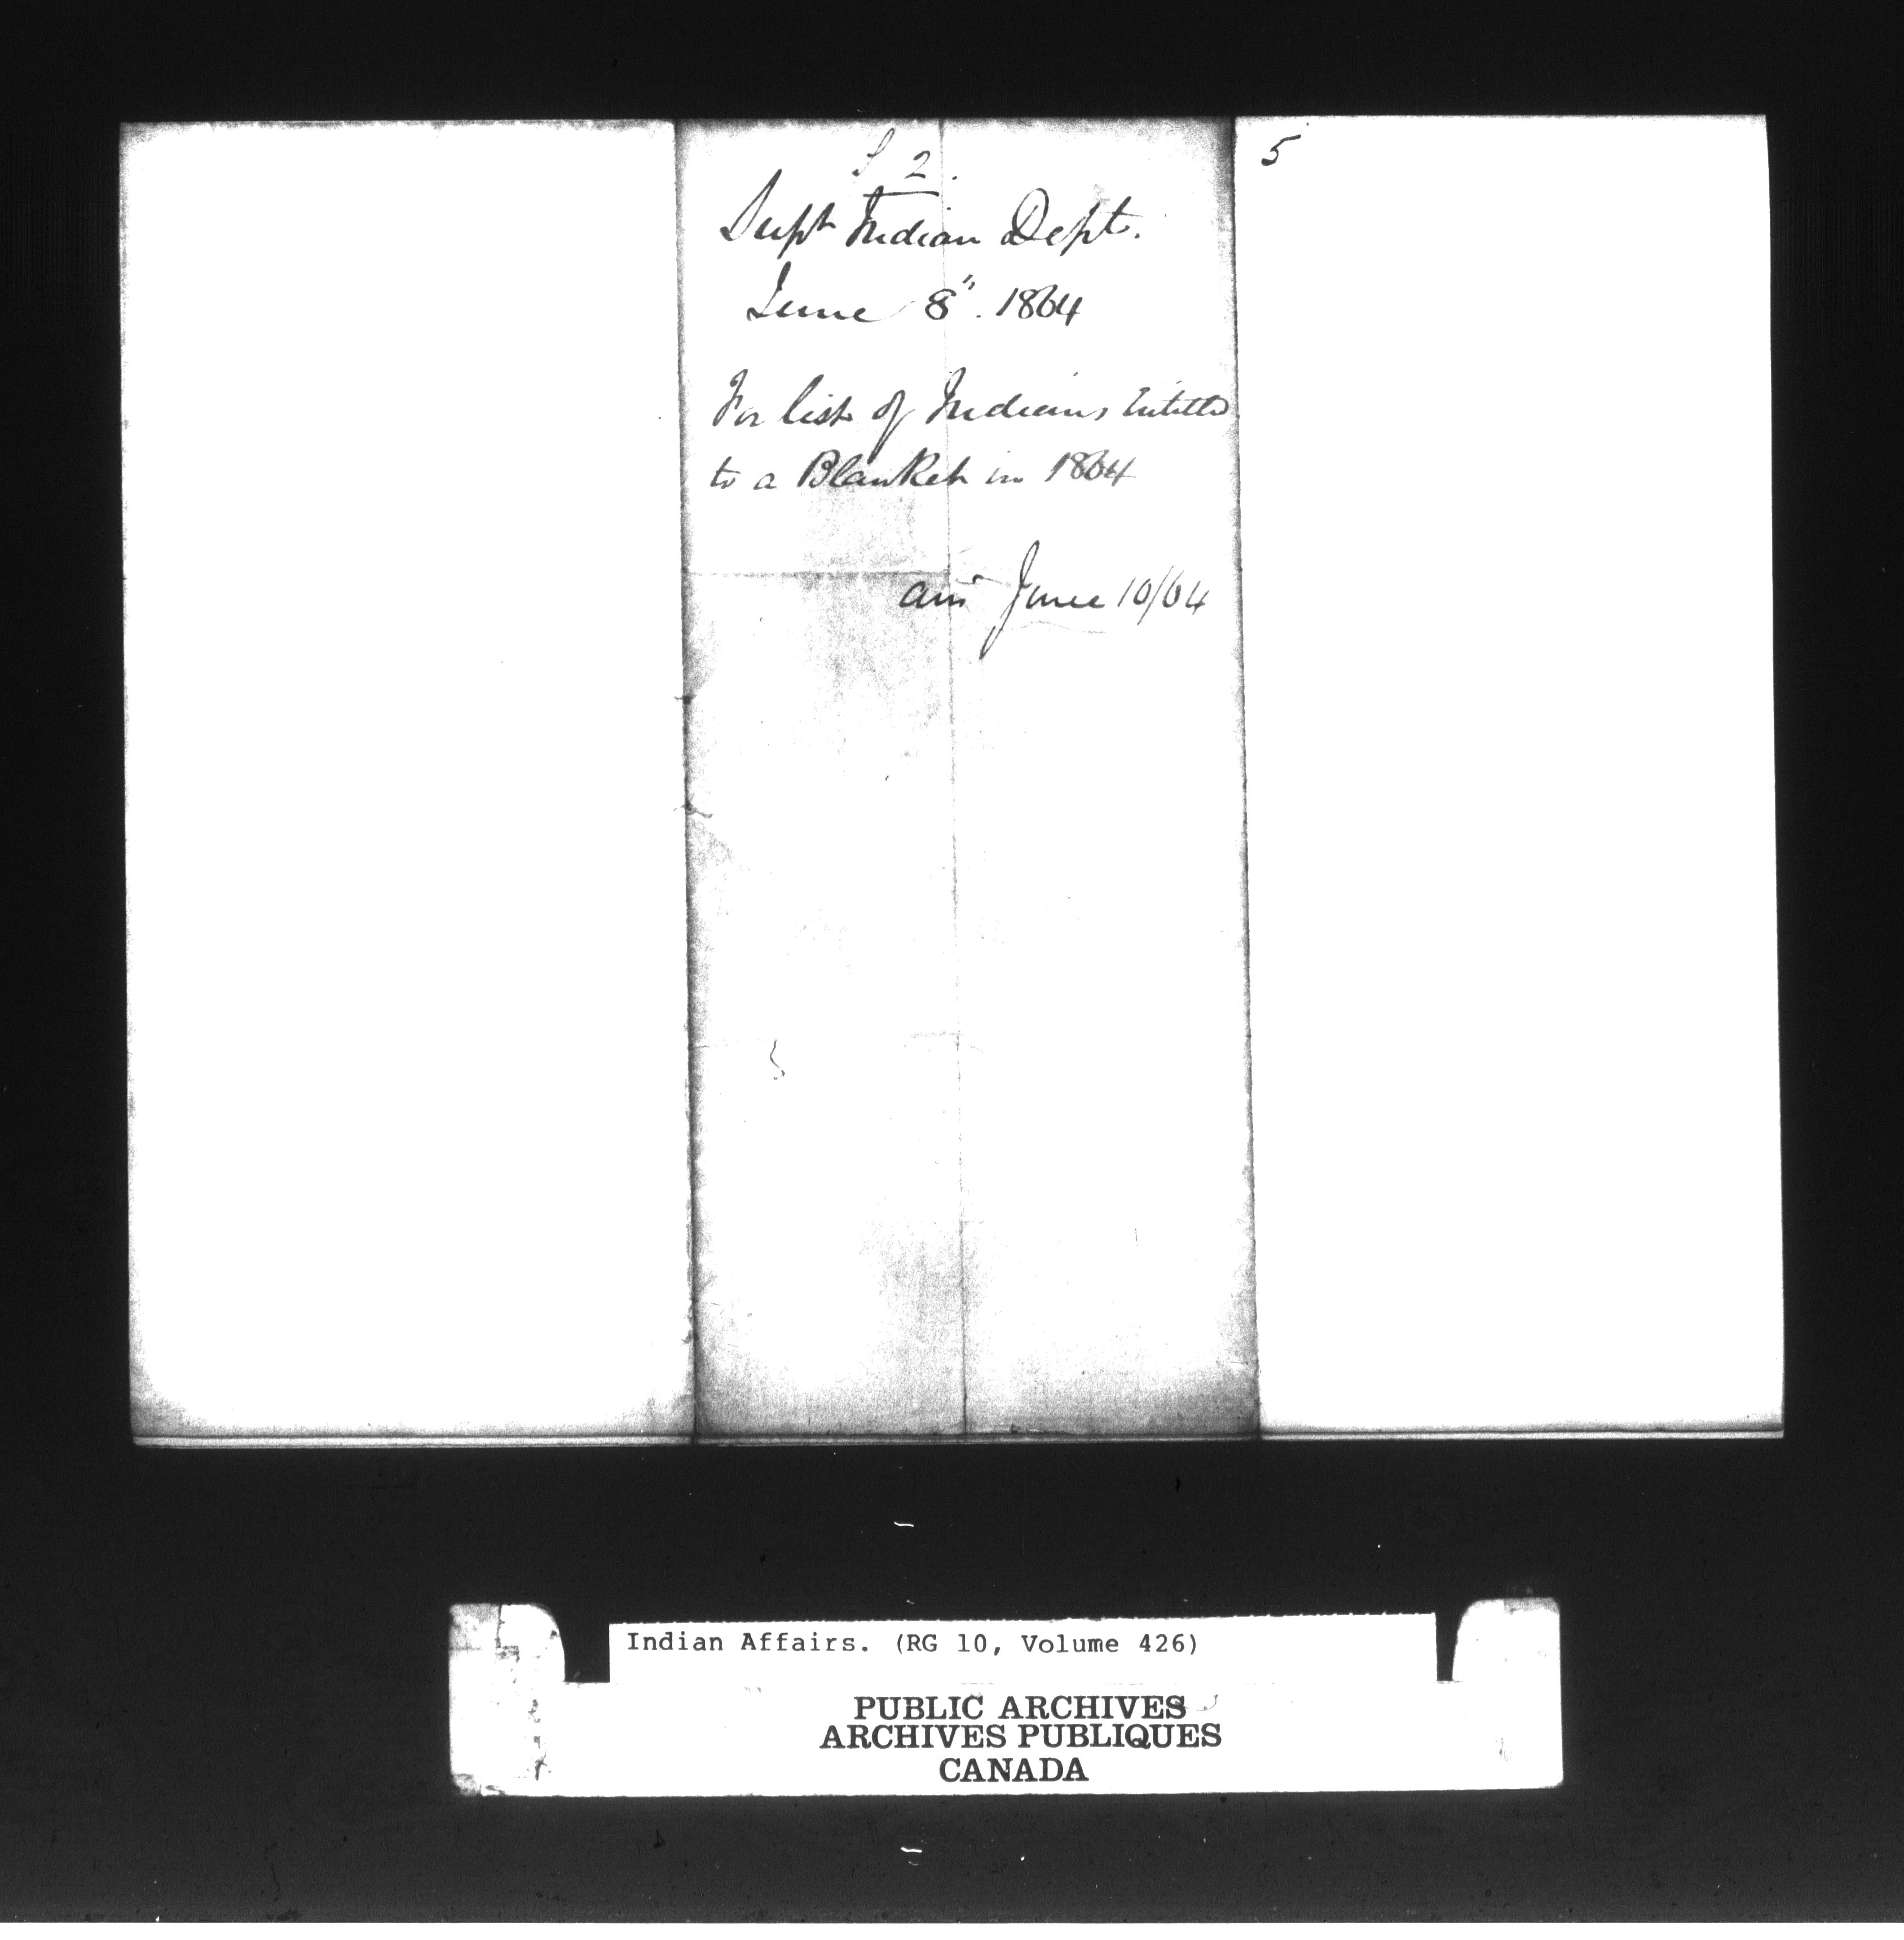 5
S 2.
Supt Indian Dept.
June 8". 1864
For list of Indians Entitled
to a Blanket in 1864
ans June 10/64
Indian Affairs. (RG 10, Volume 426)
PUBLIC ARCHIVES
ARCHIVES PUBLIQUES
CANADA